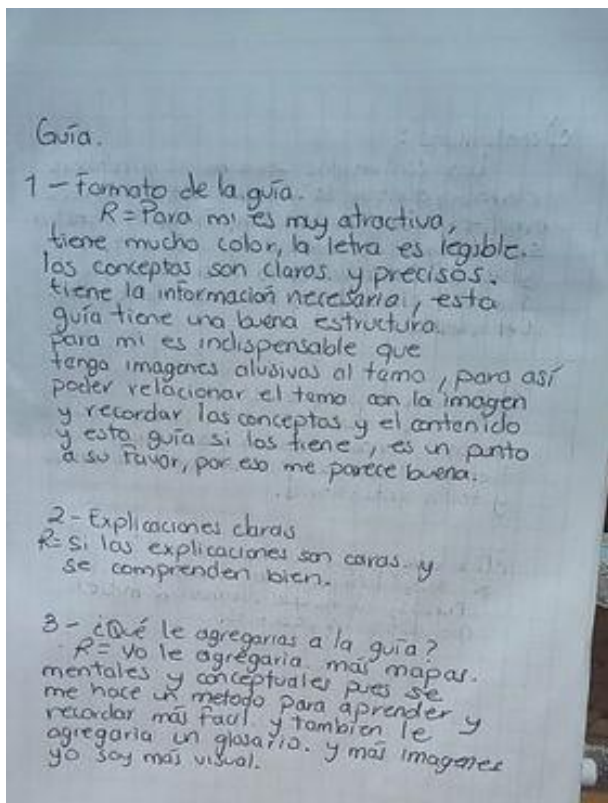 Guía.
1 - Formato de la guía.
R= Para mi es muy atractiva,
tiene mucho color, la letra es legible.
los conceptos son claros y precisos.
tiene la información necesaria, esta
guía tiene una buena estructura
para mi es indispensable que
tenga imagenes alusivas al tema, para así
poder relacionar el tema con la imagen
y recordar los conceptos y el contenido
y esta guía si los tiene, es un punto
a su favor, por eso me parece buena.
2 - Explicaciones claras
R= Si las explicaciones son caras y
se comprenden bien.
3 - ¿Qué le agregarias a la guía?
R= Yo le agregaria más mapas.
mentales y conceptuales pues se
me hace un metodo para aprender y
recordar más facil y tambien le
agregaria un glosario. y más imagenes
yo soy más visual.